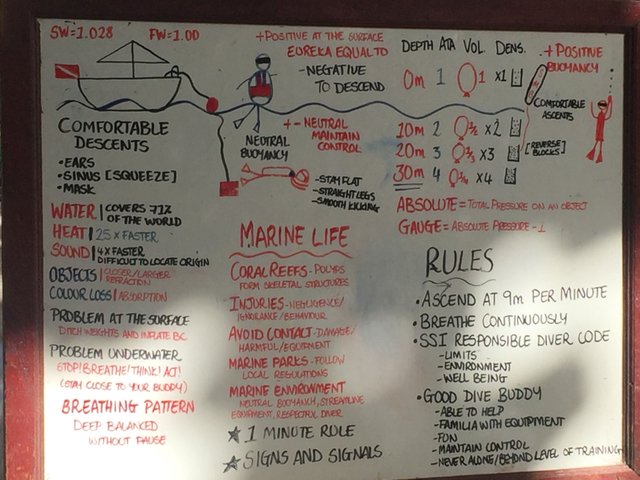 SW=1.028 FW=1.00
+POSITIVE AT THE SURFACE
EUREKA EQUAL TO
-NEGATIVE
TO DESCEND
DEPTH ATA VOL. DENS.
0m 1 1 x1
10m 2 ½ x2
20m 3 ⅓ x3
30m 4 ¼ x4
+POSITIVE
BUOYANCY
COMFORTABLE
ASCENTS
[REVERSE
BLOCKS]
COMFORTABLE
DESCENTS
•EARS
•SINUS [SQUEEZE]
•MASK
NEUTRAL
BUOYANCY
+- NEUTRAL
MAINTAIN
CONTROL
-STAY FLAT
-STRAIGHT LEGS
-SMOOTH KICKING
ABSOLUTE = TOTAL PRESSURE ON AN OBJECT
GAUGE = ABSOLUTE PRESSURE -1
WATER | COVERS 71%
OF THE WORLD
HEAT | 25 X FASTER
SOUND | 4X FASTER
DIFFICULT TO LOCATE ORIGIN
OBJECTS | CLOSER/LARGER
REFRACTION
COLOUR LOSS | ABSORPTION
PROBLEM AT THE SURFACE
DITCH WEIGHTS AND INFLATE BC
PROBLEM UNDERWATER
STOP! BREATHE! THINK! ACT!
(STAY CLOSE TO YOUR BUDDY)
BREATHING PATTERN
DEEP BALANCED
WITHOUT PAUSE
MARINE LIFE
CORAL REEFS - POLYPS
FORM SKELETAL STRUCTURES
INJURIES - NEGLIGENCE/
IGNORANCE/BEHAVIOUR
AVOID CONTACT - DAMAGE/
HARMFUL/EQUIPMENT
MARINE PARKS - FOLLOW
LOCAL REGULATIONS
MARINE ENVIRONMENT
NEUTRAL BUOYANCY, STREAMLINE
EQUIPMENT, RESPECTFUL DIVER
★ 1 MINUTE RULE
★ SIGNS AND SIGNALS
RULES
• ASCEND AT 9m PER MINUTE
• BREATHE CONTINUOUSLY
• SSI RESPONSIBLE DIVER CODE
-LIMITS
-ENVIRONMENT
-WELL BEING
• GOOD DIVE BUDDY
-ABLE TO HELP
-FAMILIA WITH EQUIPTMENT
-FUN
-MAINTAIN CONTROL
-NEVER ALONE/BEYOND LEVEL OF TRAINING